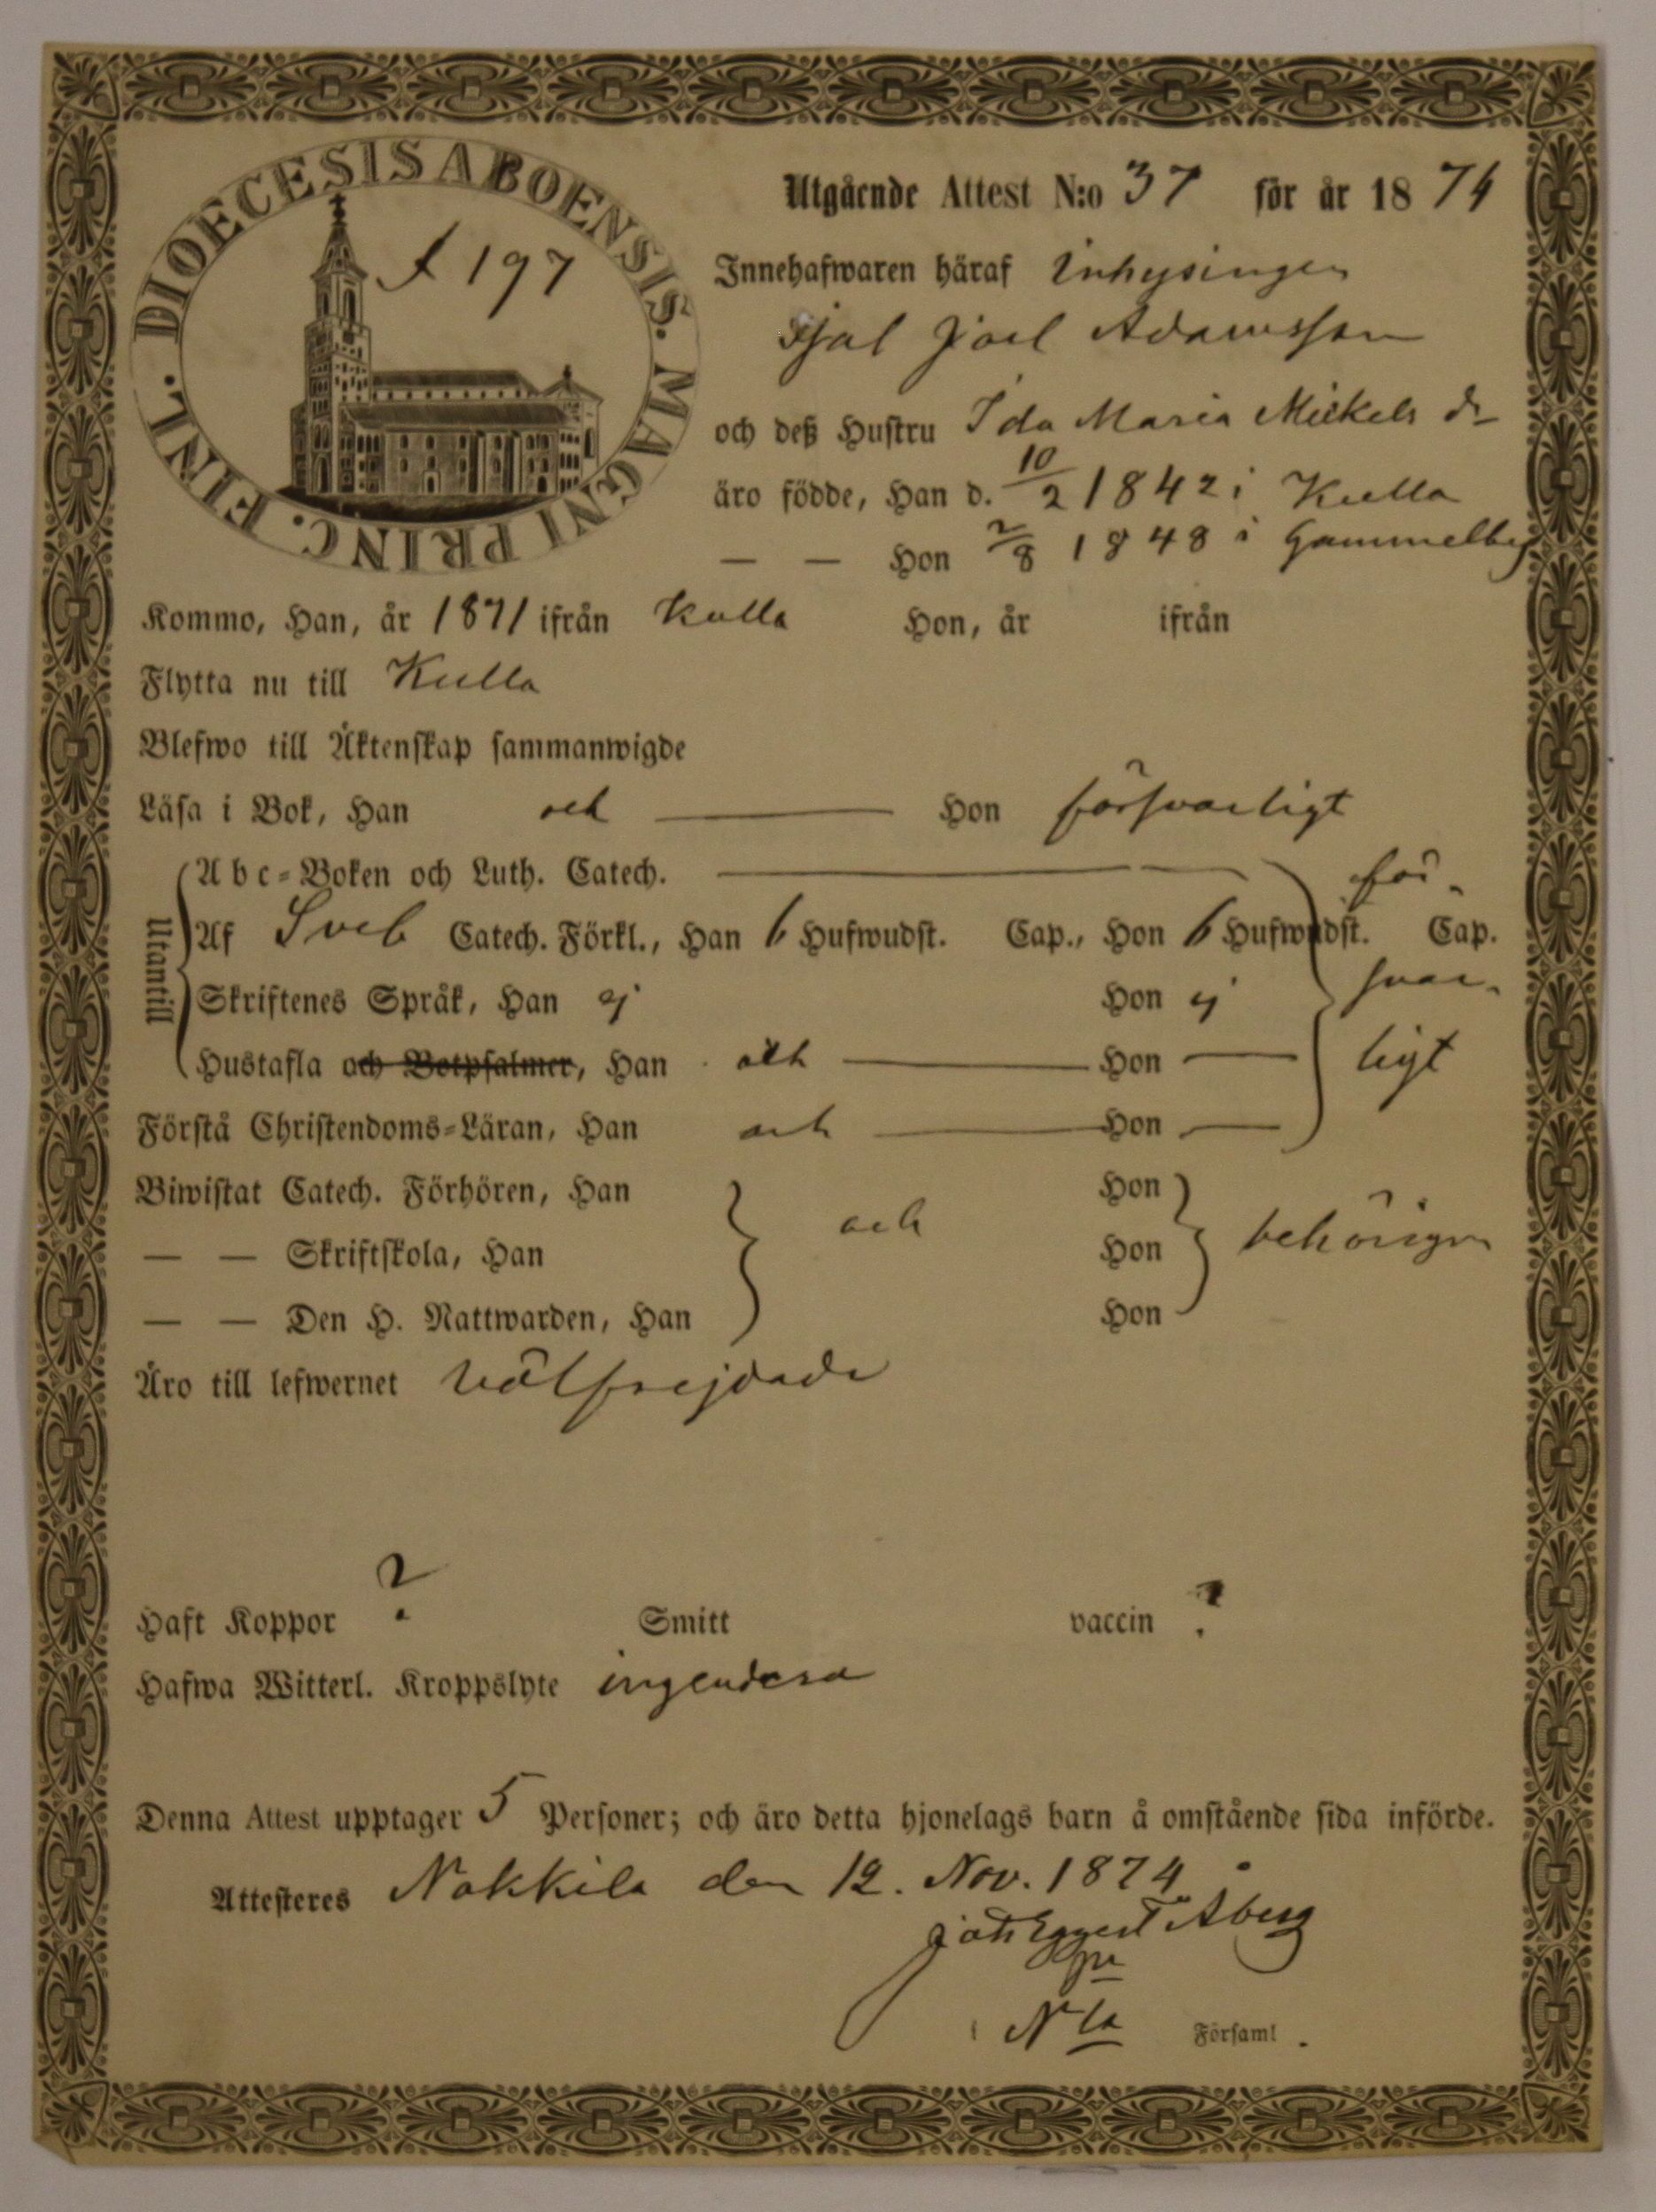 DIOECESIS ABOENSIS. MAGNI PRINC. FINL.
197
Utgående Attest N:o 37 för år 1874
Innehafwaren häraf Inhysingen
Joel Adamsson
och deß Hustru Ida Maria Mickels dr
äro födde, Han d. 10/2 1842 i Kulla
— — Hon 2/8 1848 i Gammelby
Kommo, Han, år 1871 ifrån Kulla Hon, år ifrån
Flytta nu till Kulla
Blefwo till Äktenskap sammanwigde
Läsa i Bok, Han och — Hon försvarligt
Utantill
Abc-Boken och Luth. Catech. — för-
Af Sveb Catech. Förkl., Han 6 Hufwudst. Cap., Hon 6 Hufwudst. Cap.
Skriftenes Språk, Han ej Hon ej svar-
Hustafla och Botpsalmer, Han och — Hon — ligt
Förstå Christendoms-Läran, Han och — Hon —
Biwistat Catech. Förhören, Han Hon
— — Skriftskola, Han och Hon behörigen
— — Den H. Nattwarden, Han Hon
Äro till lefwernet välfrejdade
Haft Koppor ? Smitt vaccin ?
Hafwa Witterl. Kroppslyte ingendera
Denna Attest upptager 5 Personer; och äro detta hjonelags barn å omstående sida införde.
Attesteres Nakkila den 12. Nov. 1874
Joh Eggert Åberg
i Nla Församl.